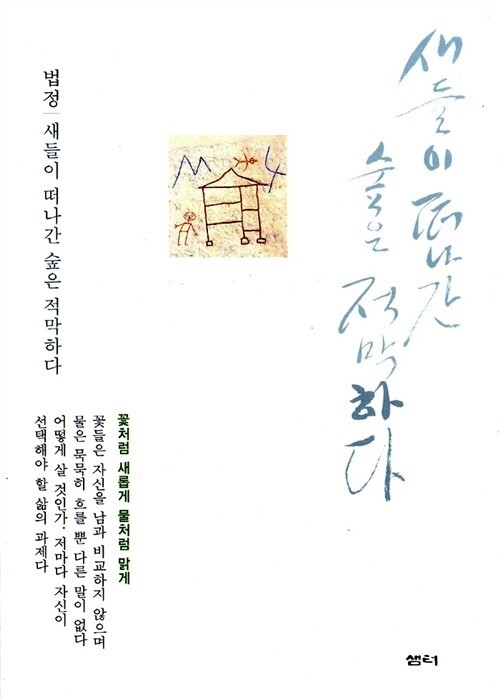 새들이 떠나간
숲은
적막하다
법정 | 새들이 떠나간 숲은 적막하다
꽃처럼 새롭게 물처럼 맑게
꽃들은 자신을 남과 비교하지 않으며
물은 묵묵히 흐를 뿐 다른 말이 없다
어떻게 살 것인가· 저마다 자신이
선택해야 할 삶의 과제다
샘터